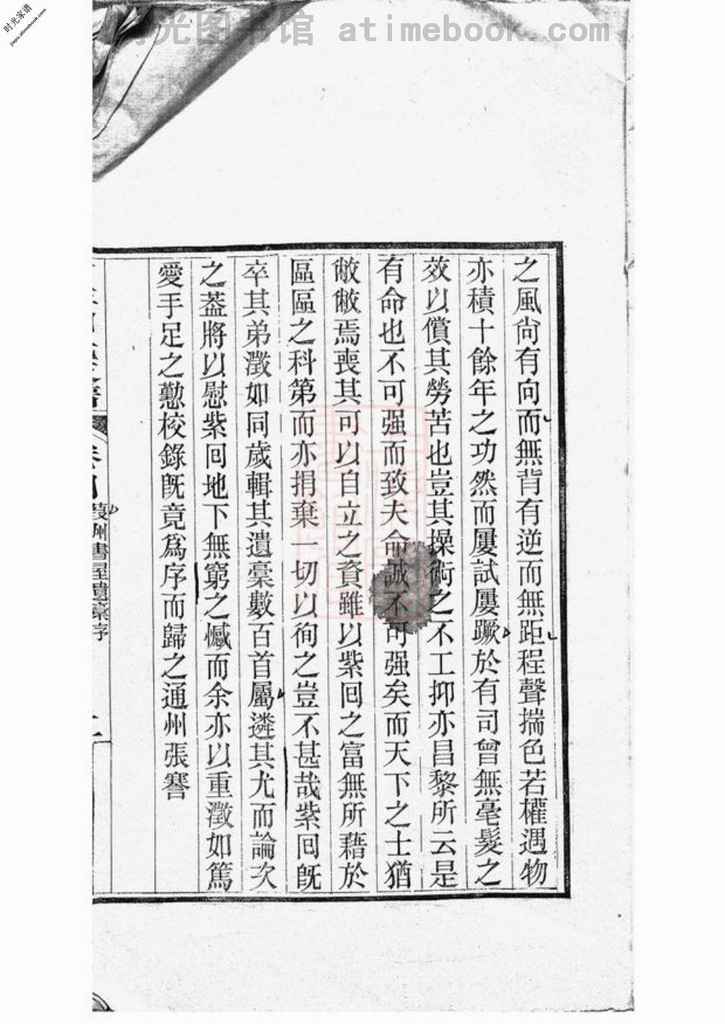 时光图书馆 atimebook.com
时光家谱
之風尙有向而無背有逆而無距程聲揣色若權遇物
亦積十餘年之功然而屢試屢蹶於有司曾無毫髮之
效以償其勞苦也豈其操術之不工抑亦昌黎所云是
有命也不可强而致夫命誠不可强矣而天下之士猶
敝敝焉喪其可以自立之資雖以紫回之富無所藉於
區區之科第而亦捐棄一切以徇之豈不甚哉紫回旣
卒其弟瀓如同歲輯其遺稾數百首屬遴其尤而論次
之葢將以慰紫回地下無窮之憾而余亦以重瀓如篤
愛手足之懃校錄旣竟爲序而歸之通州張謇
洲書屋遺稾序